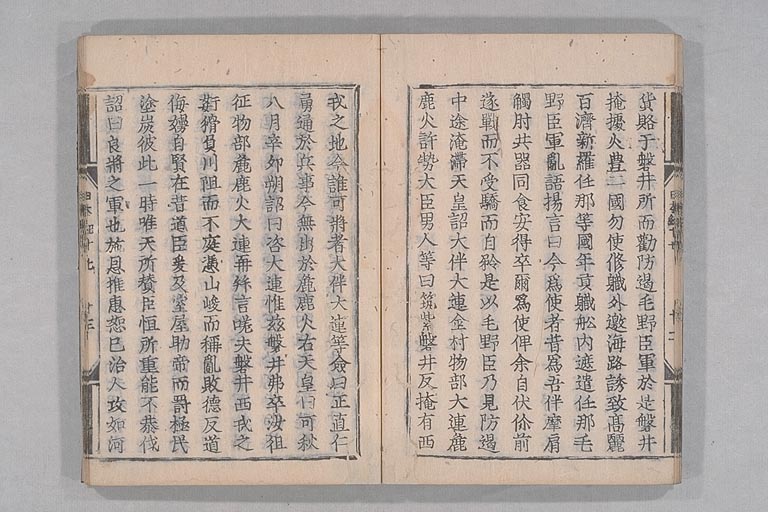 貨賂于磐井所而勸防遏毛野臣軍於是磐井
掩擾火豊二國勿使修職外邀海路誘致髙麗
百濟新羅任那等國年貢職舩內遮遣任那毛
野臣軍亂語揚言曰今爲使者昔爲吾伴摩肩
觸肘共器同食安得卒爾爲使俾余自伏伱前
遂戰而不受驕而自矜是以毛野臣乃見防遏
中途淹滯天皇詔大伴大連金村物部大連麁
鹿火許勢大臣男人等曰筑紫磐井反掩有西
我之地今誰可將者大伴大連等僉曰正直仁
勇通於兵事今無出於麁鹿火右天皇曰可秋
八月辛卯朔詔曰咨大連惟茲磐井弗率汝徂
征物部麁鹿火大連再拜言嗟夫磐井西我之
姧猾負川阻而不庭憑山峻而稱亂敗德反道
侮嫚自賢在昔道臣爰及室屋助帝而罸極民
塗炭彼此一時唯天所贊臣恒所重能不恭伐
詔曰良將之軍也施恩推惠恕已治人攻如河